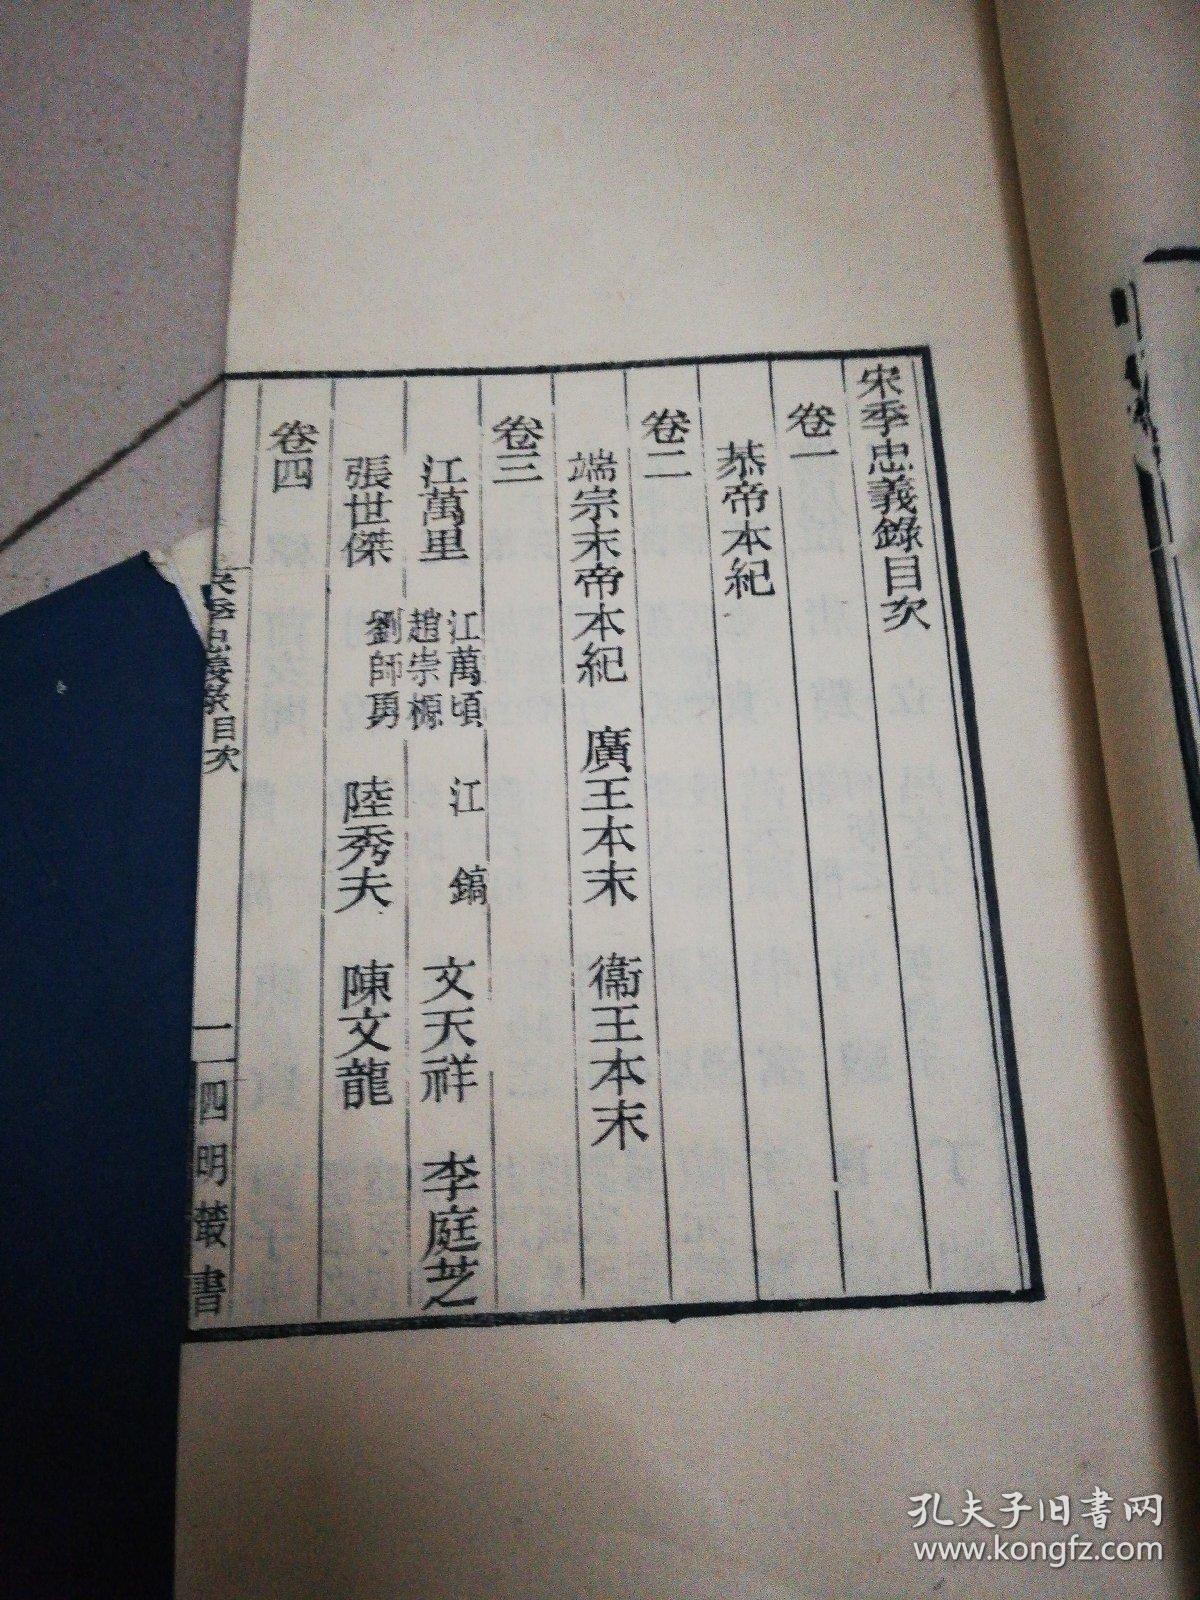 宋季忠義錄目次
卷一
恭帝本紀
卷二
端宗末帝本紀 廣王本末 衞王本末
卷三
江萬里 江萬頃 江鎬 趙崇榞 文天祥 李庭芝
張世傑 劉師勇 陸秀夫 陳文龍
卷四
宋季忠義錄目次 一 四明叢書
孔夫子旧書网
www.kongfz.com